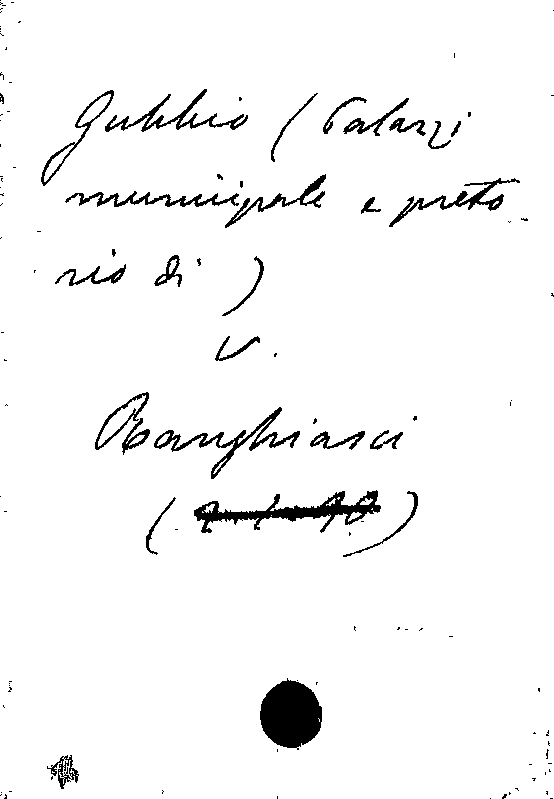 Gubbio (Palazzi
municipale e preto
rio di)
v.
Ranghiasci
(        )